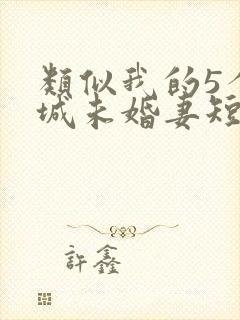 類似我的5個
城未婚妻短
許鑫